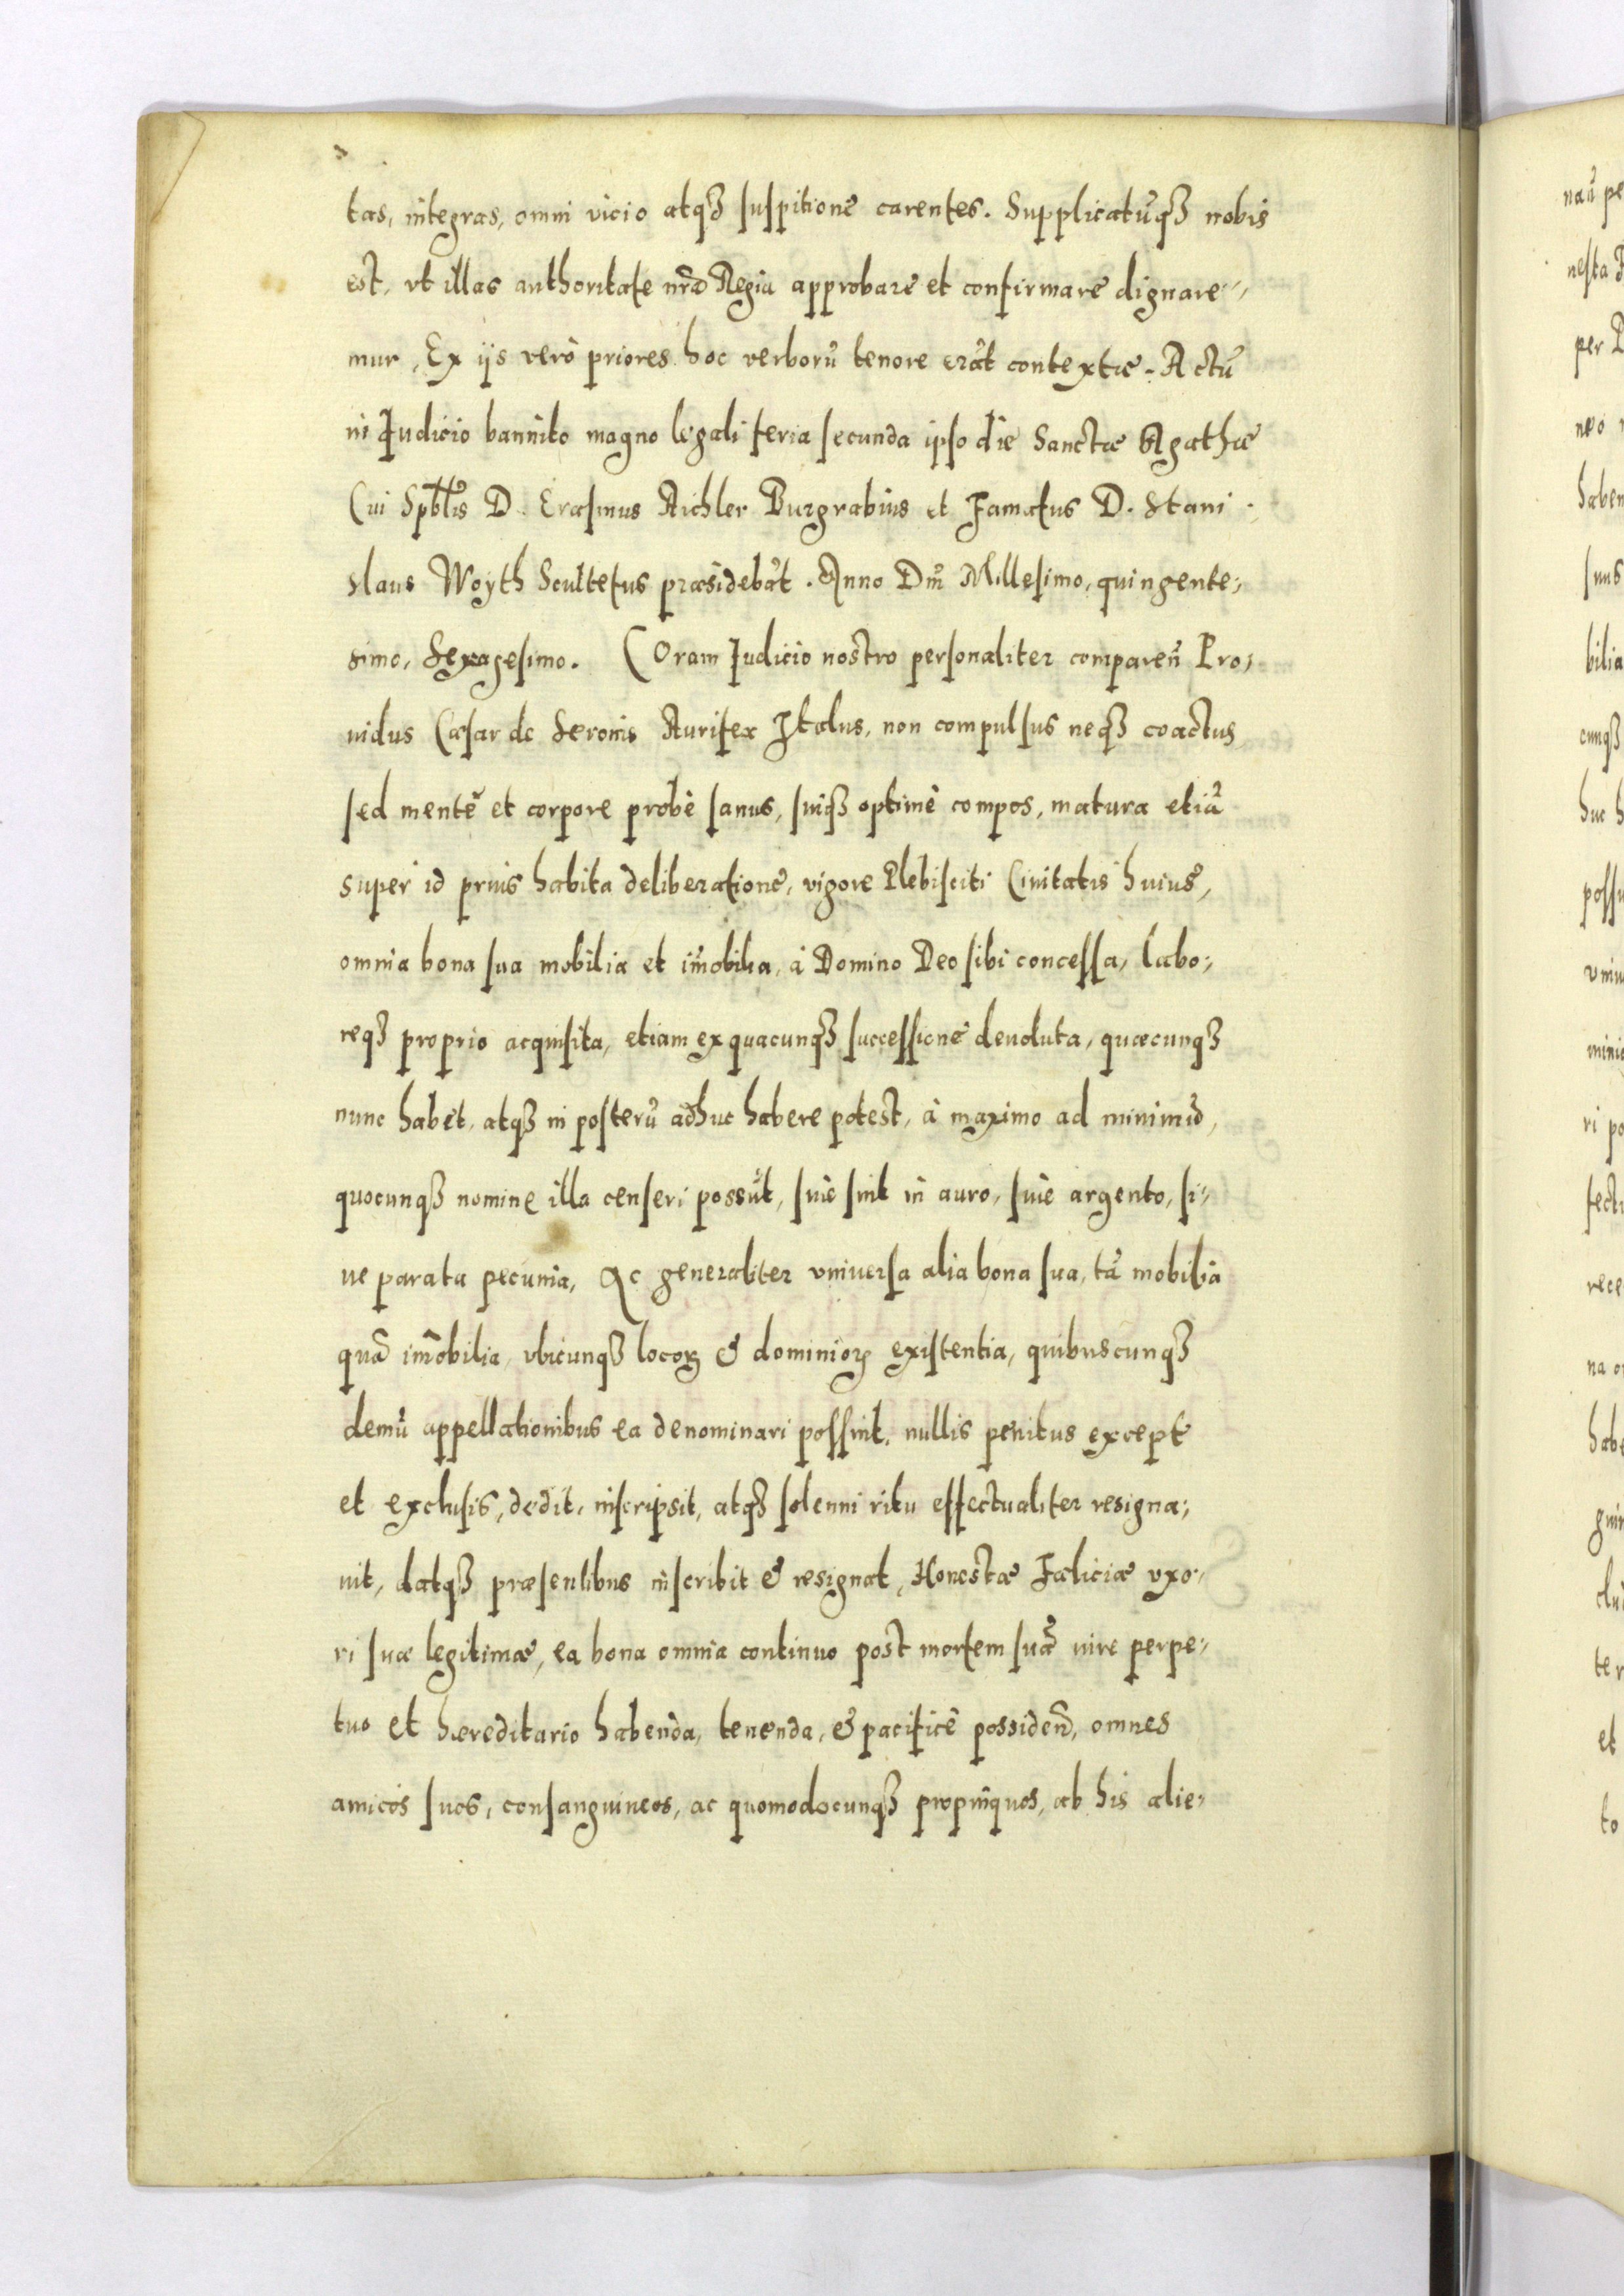 tas, integras, omni vicio atqꝫ suspitione carentes. Supplicatũqꝫ nobis
est, vt illas authoritate nrã Regia approbare et confirmare dignare-
mur, Ex ijs verò priores hoc verborũ tenore erãt contextæ. Actũ
in Judicio bannito magno legali feria secunda ipso die Sanctæ Agathæ
Cui Spblis D. Erasmus Aichler Burgrabius et Famatus D. Stani
slaus Woyth Scultetus præsidebãt. Anno Dnĩ Millesimo, quingente-
simo, Sexagesimo. COram Judicio nostro personaliter comparen̄ Pro-
uidus Cæsar de Seronis Aurifex Italus, non compulsus neqꝫ coactus
sed mente et corpore probè sanus, suiqꝫ optimè compos, matura etiã
super id prius habita deliberatione, vigore Plebisciti Ciuitatis huius,
omnia bona sua mobilia et im̃obilia, à Domino Deo sibi concessa, labo-
reqꝫ proprio acquisita, etiam ex quacunqꝫ successione deuoluta, quæcunqꝫ
nunc habet, atqꝫ in posterũ adhuc habere potest, à maximo ad minimũ,
quocunqꝫ nomine illa censeri possũt, siue sint in auro, siue argento, si-
ue parata pecunia, Ac generaliter vniuersa alia bona sua, tã mobilia
quã im̃obilia, vbicunqꝫ locoꝝ & dominioꝝ existentia, quibuscunqꝫ
demũ appellationibus ea denominari possint, nullis penitus except
et exclusis, dedit, inscripsit, atqꝫ solenni ritu effectualiter resigna-
uit, datqꝫ præsentibus inscribit & resignat, Honestæ Fæliciæ vxo-
ri suæ legitimæ, ea bona omnia continuo post mortem suã iure perpe-
tuo et hæreditario habenda, tenenda, & pacificè possiden̄, omnes
amicos suos, consanguineos, ac quomodocunqꝫ propinquos, ab his alie-